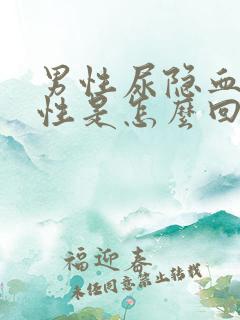 男性尿隐血
性是怎麽回
福迎春
未经同意禁止转载